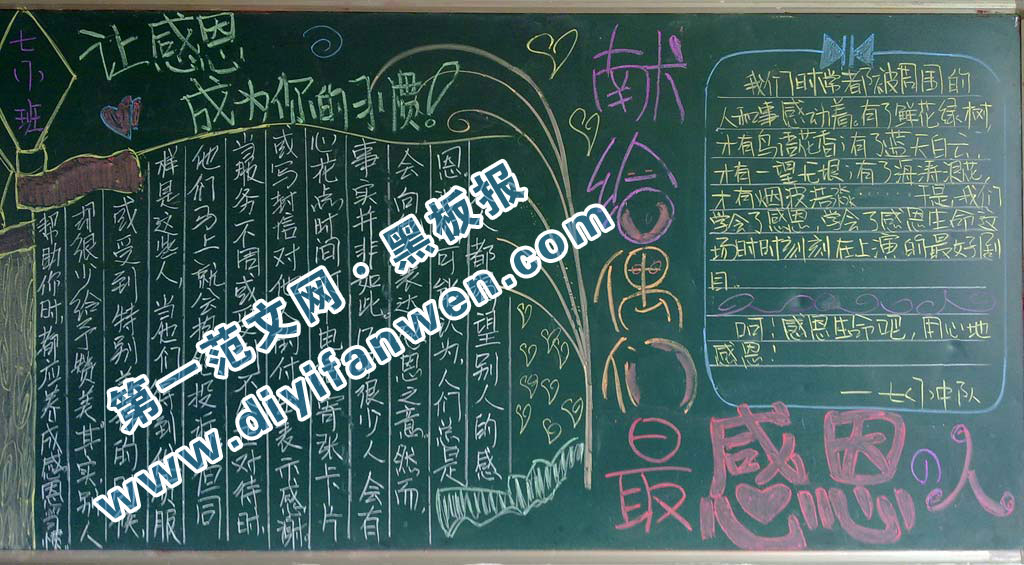 七小班
让感恩
成为你的习惯!
都 望别人的感
恩 为,人们总是
会向 表达 恩之意,然而,
事实并非 此, 很少人会有
心花点时间 寄张卡片
或写封信对他 付 表示感谢
当服务不周或 不 对待时,
他们马上就会 投诉 但同
样是这些人,当他们 到 服
或受到特别 的
却很少给予赞美。其实别人
帮助你时,都应养成感恩习惯。
献给偶们
最感恩の人
我们时常都被周围的
人和事感动着,有了鲜花绿树,
才有鸟语花香;有了蓝天白云,
才有一望无垠;有了海涛浪花,
才有烟波 淼……于是,我们
学会了感恩,学会了感恩生命这
场时时刻刻在上演的最好剧
目。
呵!感恩生命吧,用心地
感恩!
——七 中队
第一范文网·黑板报
www.diyifanwen.com